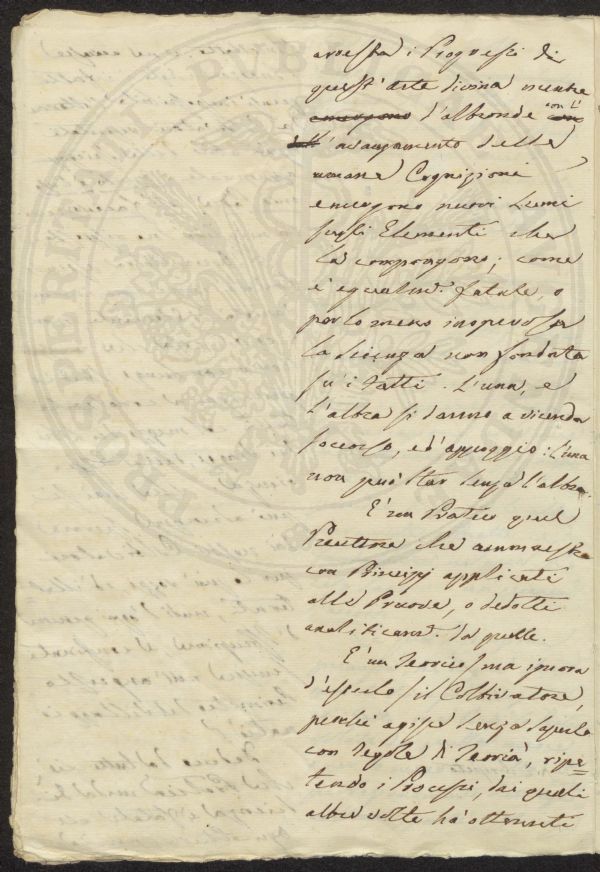 arresta i Progressi di
quest'arte divina mentre
emergono d'altronde con l'
avanzamento delle
umane Cognizioni
emergono nuovi Lumi
sugli Elementi che
la compongono; come
è egualm.e fatale, o
per lo meno inoperosa
la Scienza non fondata
su i Fatti. L'una, e
l'altra si danno a vicenda
soccorso, ed appoggio: l'una
non può star senza l'altra.
È un Pratico quel
Precettore che ammaestra
con Principj applicati
alle Pruove, o dedotti
analiticam.e da quelle.
È un Teorico, ma ignora
d'esserlo, il Coltivatore,
perchè agisce senza saperlo
con regole di Teorià, ripe=
tendo i Processi, dai quali
altre volte ha ottenuti
PUB
PROSPERITATI